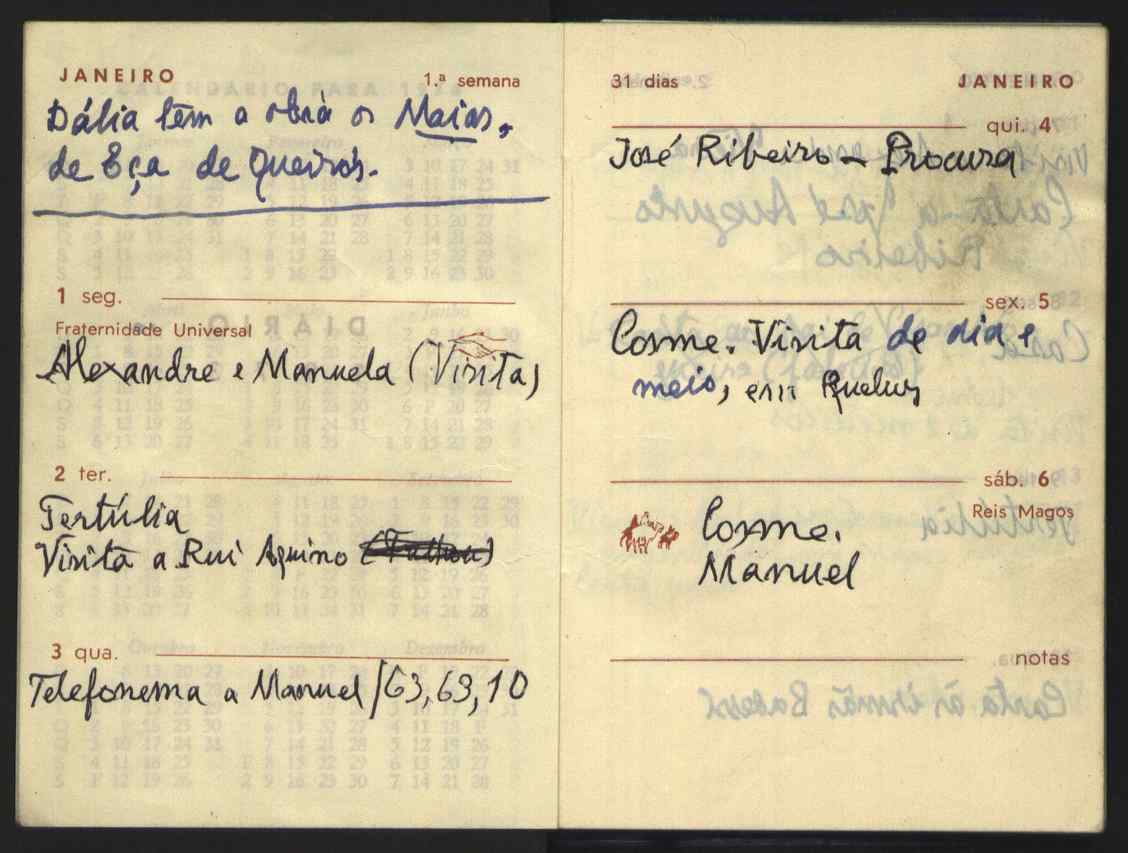 JANEIRO 1.ª semana
Dália tem a obra os Maias,
de Eça de Queirós.
1 seg.
Fraternidade Universal
Alexandre e Manuela (Visita)
2 ter.
Tertúlia
Visita a Rui Aquino
3 qua.
Telefonema a Manuel /63,63,10
31 dias JANEIRO
qui. 4
José Ribeiro - Procura
sex. 5
Cosme. Visita de dia e
meio, em Queluz
sáb. 6
Reis Magos
Cosme.
Manuel
notas